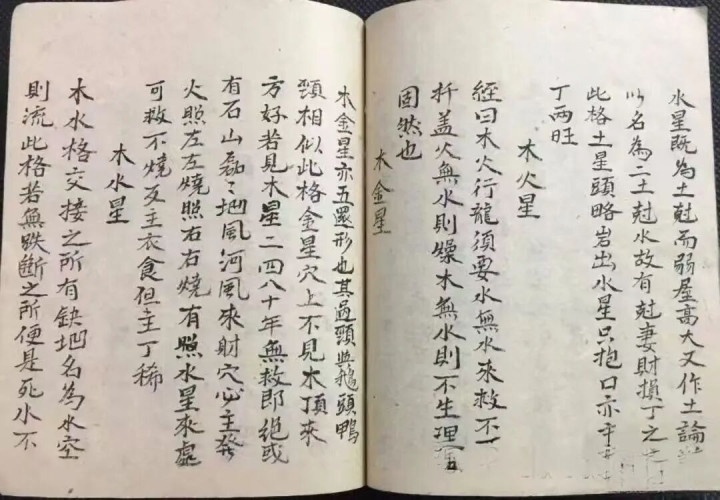 水星既為土尅而弱屋高大又作土論
以名為二土尅水故有尅妻財損丁之
此格土星頭略岩出水星只抱口亦
丁两旺
木火星
經曰木火行龍須要水無水來救不可
扦盖火無水則燥木無水則不生理
固然也
木金星
木金星亦五還形也其過頸與鵝頭鴨
頸相似此格金星穴上不見木頂來
方好若見木星二四八十年無救即絕或
有石山磊々坳風河風來財穴必主發
火照左左燒照右右燒有照水星來處
可救不燒亥主衣食但主丁稀
木水星
木水格交接之所有缺坳名為水空
則流此格若無跌斷之所便是死水不